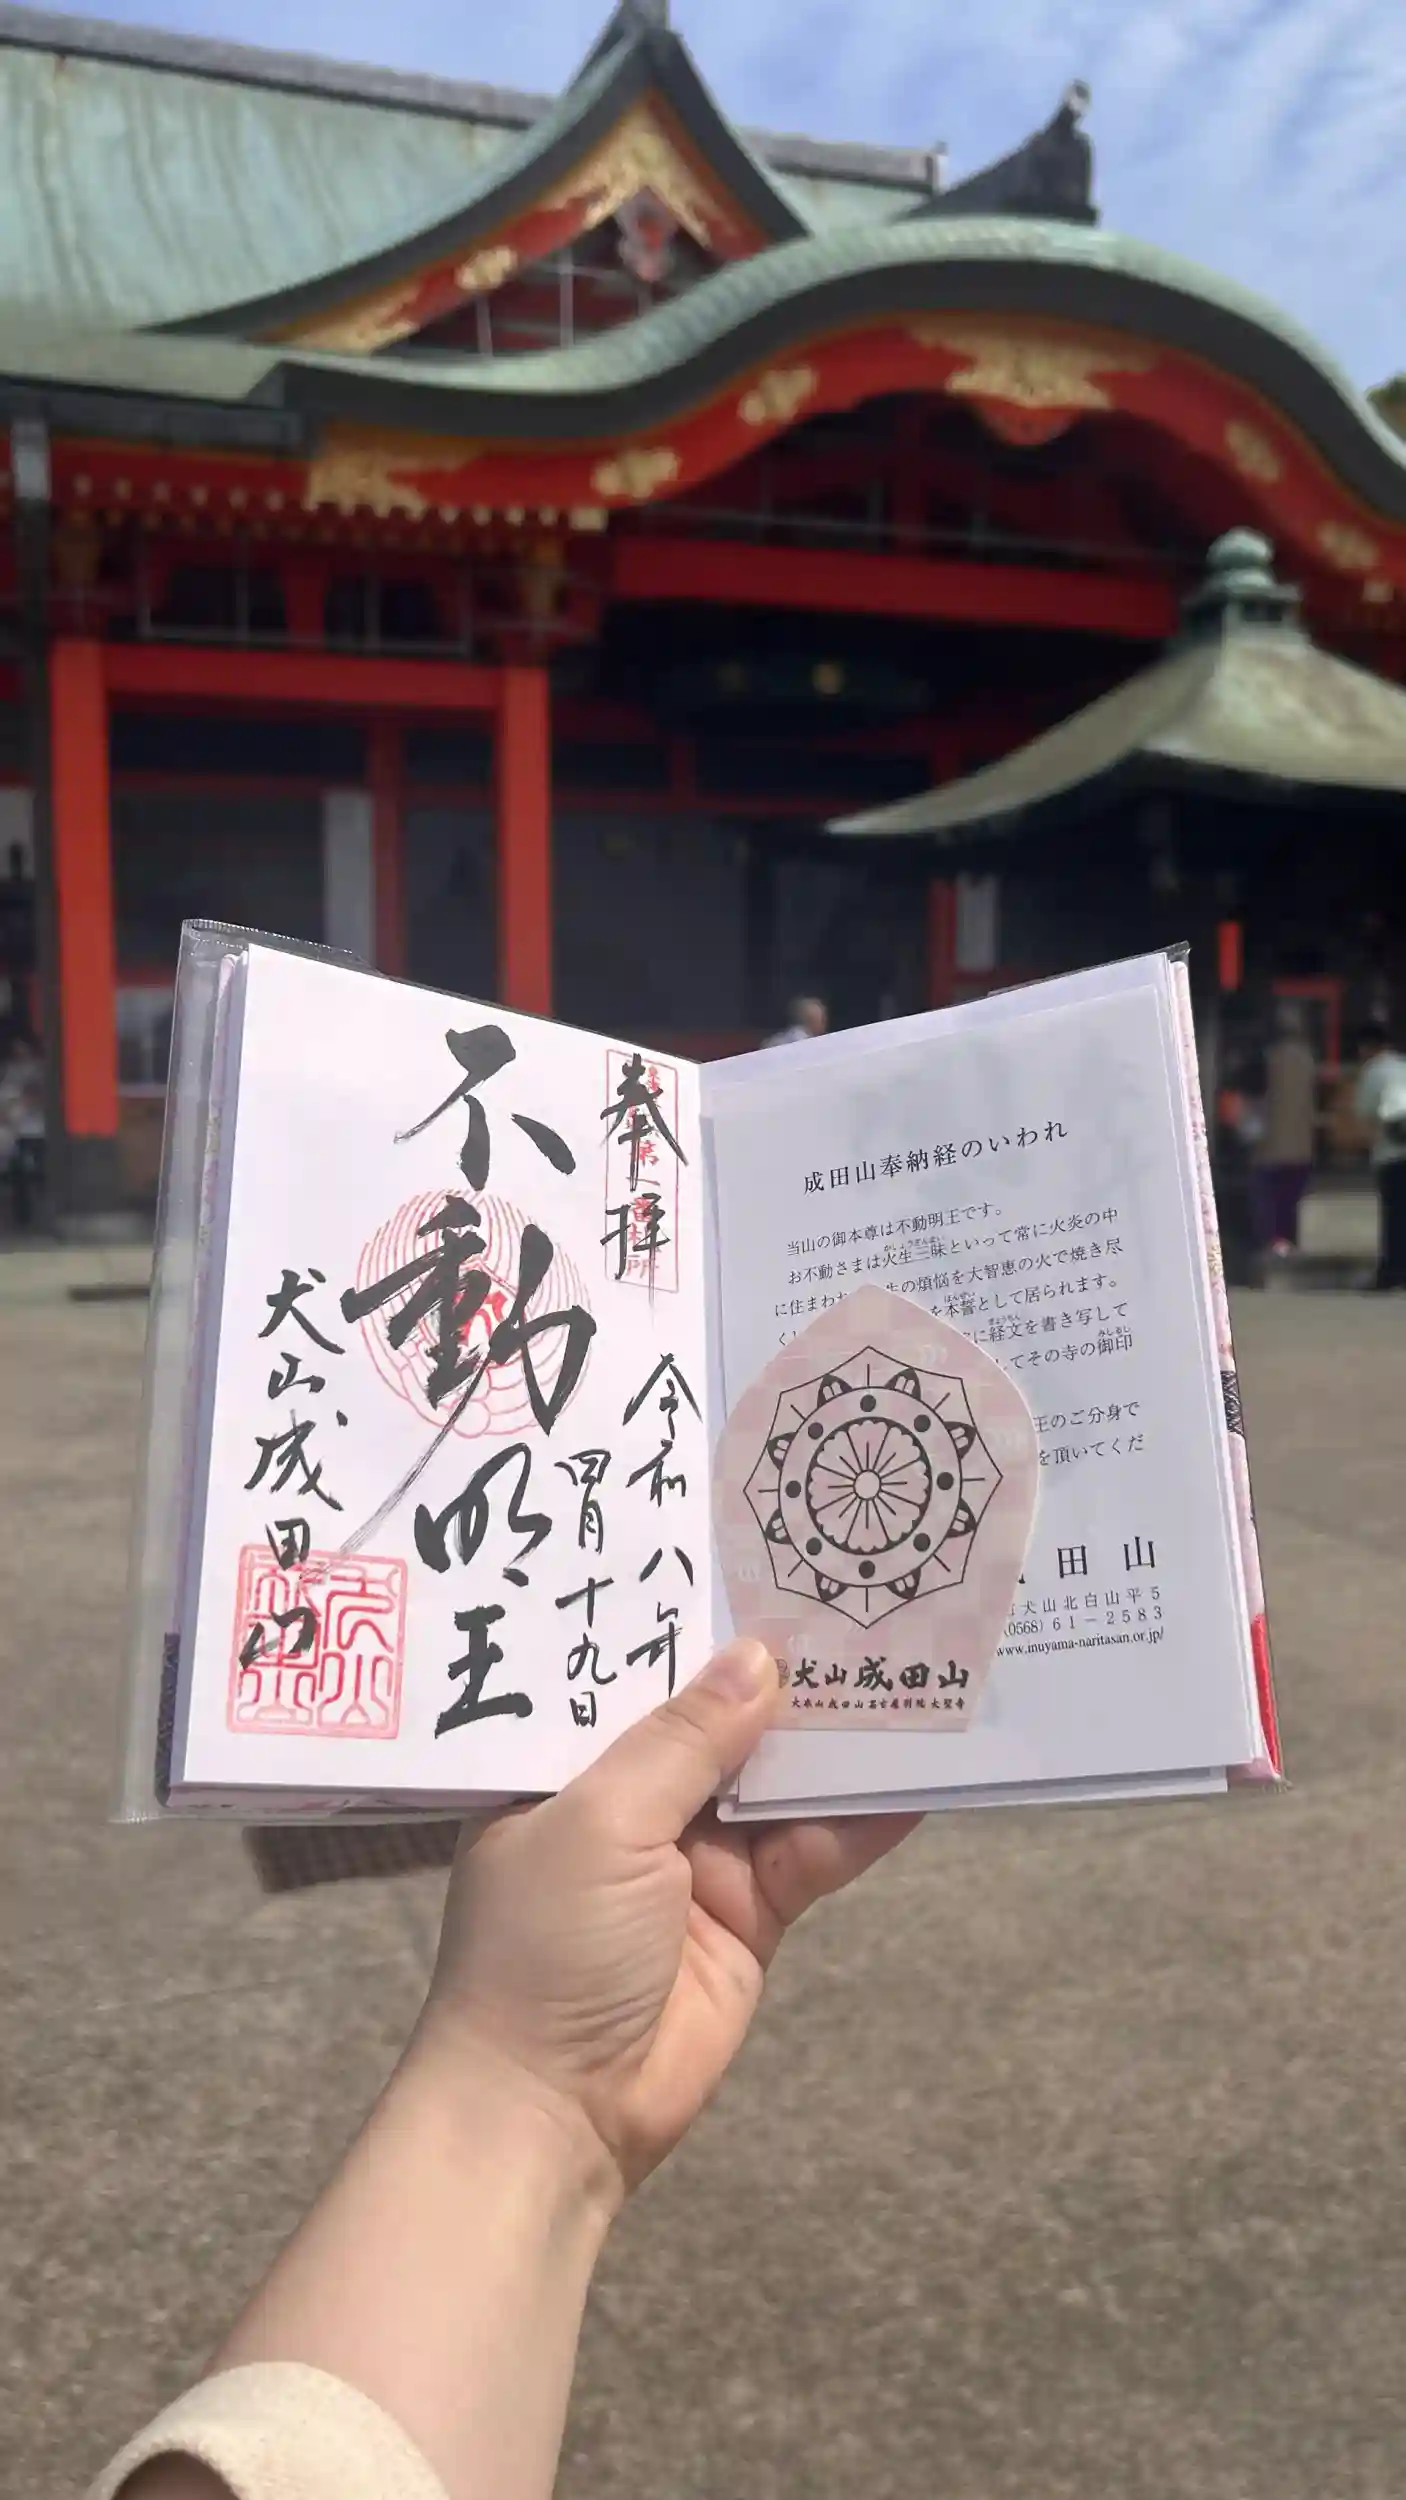 奉拝
令和八年
四月十九日
不動明王
犬山成田山
成田山奉納経のいわれ
当山の御本尊は不動明王です。
お不動さまは火生三昧といって常に火炎の中
に住まわれ 生の煩悩を大智恵の火で焼き尽
を本誓として居られます。
に経文を書き写して
してその寺の御印
王のご分身で
を頂いてくだ
田山
犬山北白山平5
(0568)61-2583
www.inuyama-naritasan.or.jp/
犬山成田山
大本山成田山名古屋別院大聖寺